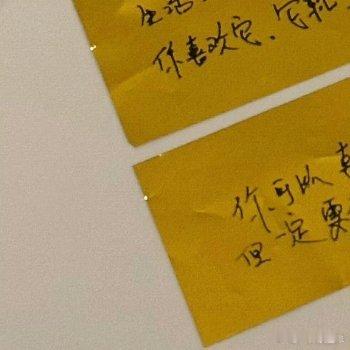 生活
你喜欢它、它就
你可以喜
但一定要